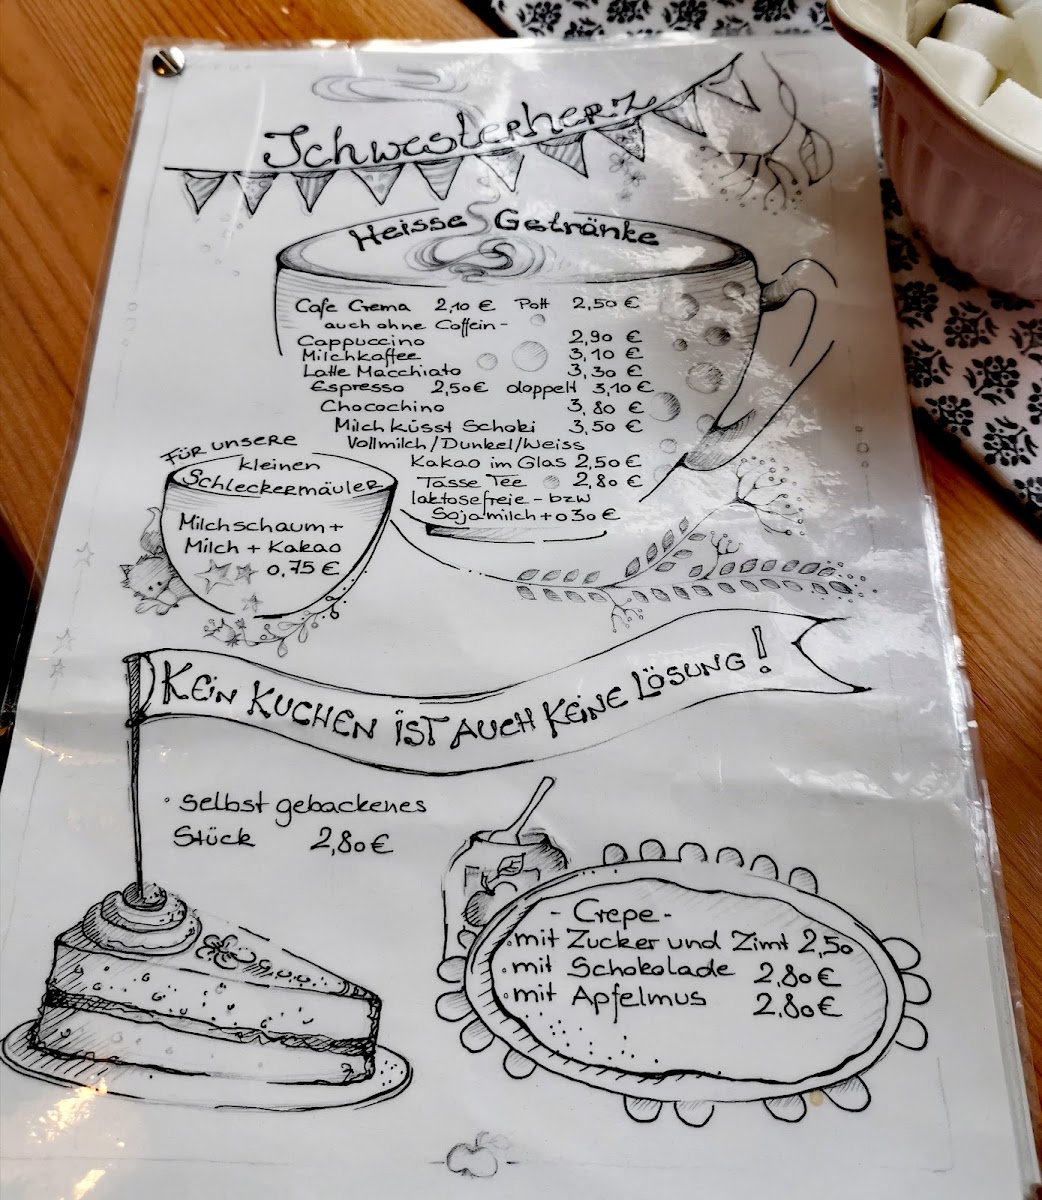 Schwesterherz
Heisse Getränke
Cafe Crema 2,10 € Pott 2,50 €
auch ohne Coffein -
Cappuccino 2,90 €
Milchkaffee 3,10 €
Latte Macchiato 3,30 €
Espresso 2,50€ doppelt 3,10 €
Chocochino 3,80 €
Milch küsst Schoki 3,50 €
Vollmilch/Dunkel/Weiss
Kakao im Glas 2,50 €
Tasse Tee 2,80 €
laktosefreie - bzw
Sojamilch + 0 30 €
Für unsere
kleinen
Schleckermäuler
Milchschaum +
Milch + Kakao
0,75 €
KEiN KUCHEN iST AUCH KEiNE LÖSUNG!
• selbst gebackenes
Stück 2,80 €
- Crepe -
• mit Zucker und Zimt 2,50
• mit Schokolade 2,80 €
• mit Apfelmus 2,80 €